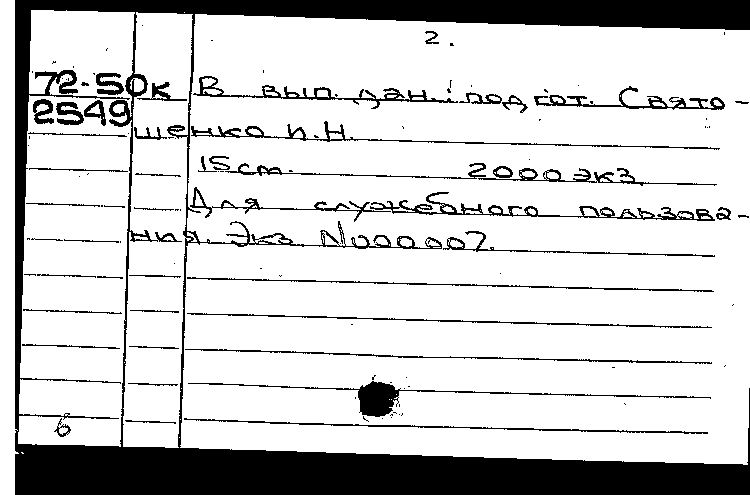 2.
72-50к В вып. дан.: подгот. Свято-
2549 шенко И.Н.
15 cm. 2000 экз.
Для служебного пользова-
ния. Экз. N000007.
6